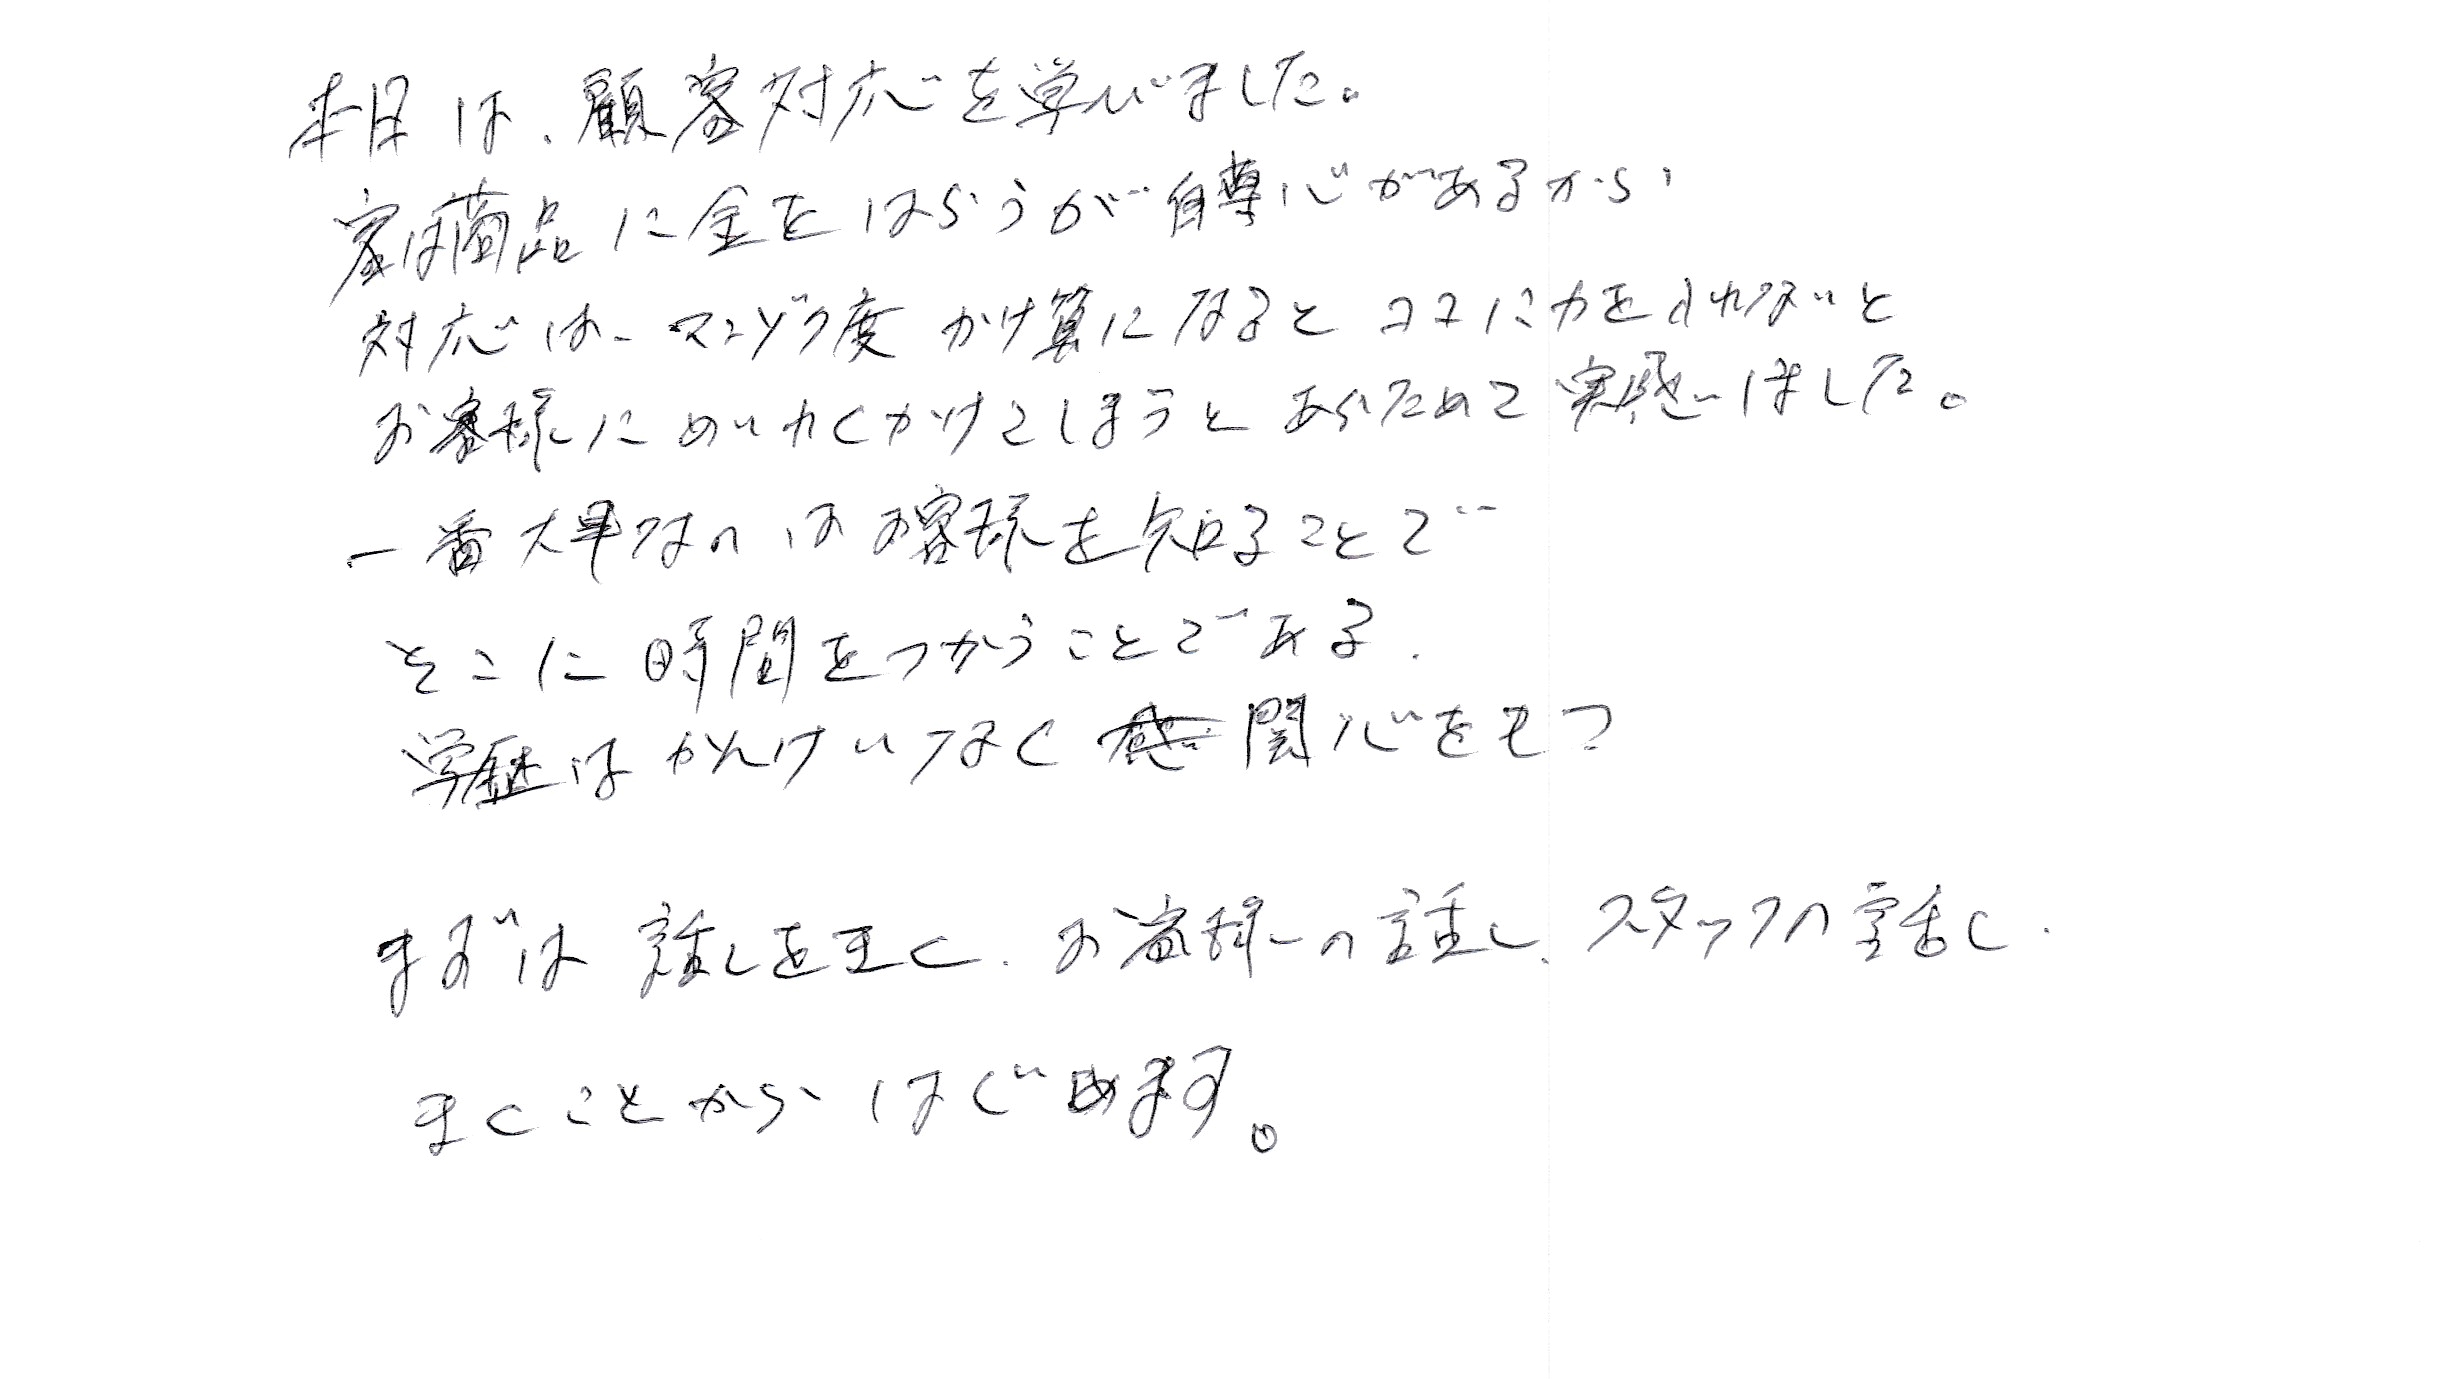 本日は、顧客対応を学びました。
客は商品に金をはらうが自尊心があるから
対応は、マンゾク度かけ算になると ココに力を入れないと
お客様にめいわくかけてしまうと あらためて実感しました。
一番大事なのはお客様を知ることで
そこに時間をつかうことである。
学歴はかんけいなく 関心をもつ
まずは 話しをきく、お客様の話し、スタッフの話し、
きくことからはじめます。